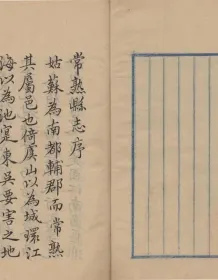 常熟縣志序
姑蘇為南都輔郡而常熟
其屬邑也倚虞山以為城環江
海以為池寔東吳要害之地